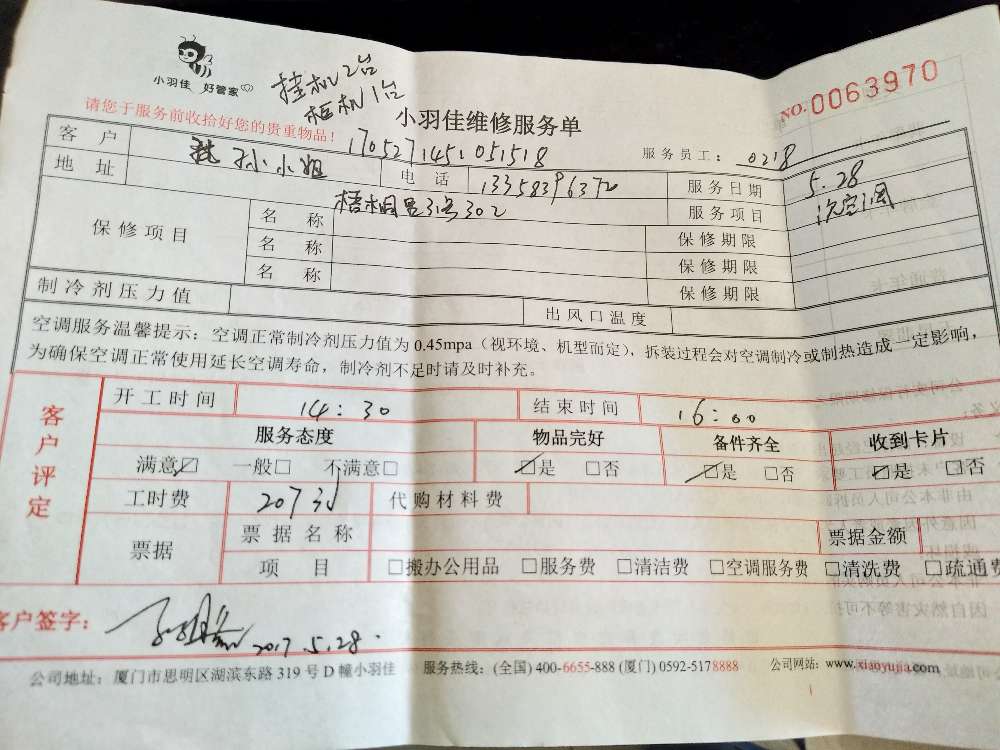 小羽佳 好管家
挂机2台
柜机1台
NO.0063970
请您于服务前收拾好您的贵重物品!
小羽佳维修服务单
170527145:051518
服务员工: 0218
客户 孙小姐 电话 13358396372 服务日期 5.28
地址 梧桐 31号302 服务项目 洗空调
保修项目 名称 保修期限
名称 保修期限
名称 保修期限
制冷剂压力值 出风口温度
空调服务温馨提示:空调正常制冷剂压力值为0.45mpa(视环境、机型而定),拆装过程会对空调制冷或制热造成一定影响,
为确保空调正常使用延长空调寿命,制冷剂不足时请及时补充。
客户评定
开工时间 14:30 结束时间 16:00
服务态度 物品完好 备件齐全 收到卡片
满意☑ 一般□ 不满意□ ☑是 □否 ☑是 □否 ☑是 □否
工时费 207 代购材料费
票据 票据名称 票据金额
项目 □搬办公用品 □服务费 □清洁费 □空调服务费 □清洗费 □疏通费
客户签字: 2017.5.28.
公司地址:厦门市思明区湖滨东路319号D幢小羽佳 服务热线:(全国)400-6655-888 (厦门)0592-5178888 公司网站:www.xiaoyujia.com